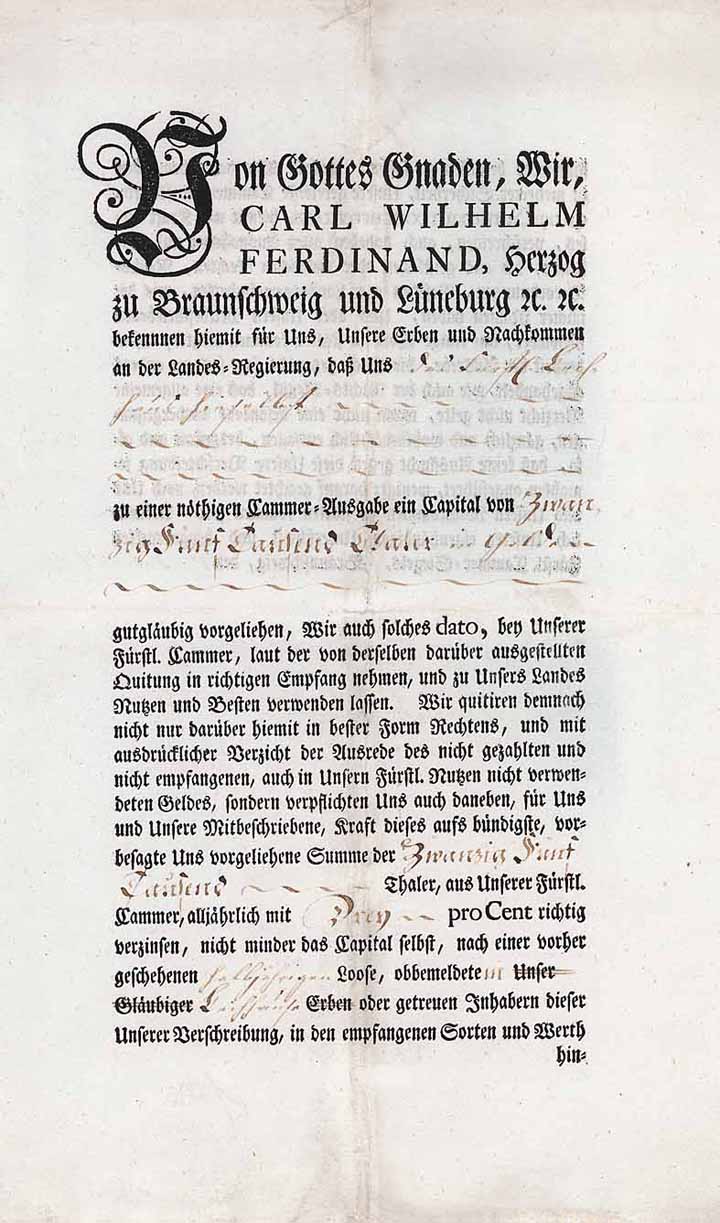 Von Gottes Gnaden, Wir,
CARL WILHELM
FERDINAND, Herzog
zu Braunschweig und Lüneburg ꝛc. ꝛc.
bekennnen hiemit für Uns, Unsere Erben und Nachkommen
an der Landes-Regierung, daß Uns
zu einer nöthigen Cammer-Ausgabe ein Capital von Zwan
zig Fünf Tausend Thaler in Golde
gutgläubig vorgeliehen, Wir auch solches dato, bey Unserer
Fürstl. Cammer, laut der von derselben darüber ausgestellten
Quitung in richtigen Empfang nehmen, und zu Unsers Landes
Nutzen und Besten verwenden lassen. Wir quitiren demnach
nicht nur darüber hiemit in bester Form Rechtens, und mit
ausdrücklicher Verzicht der Ausrede des nicht gezahlten und
nicht empfangenen, auch in Unsern Fürstl. Nutzen nicht verwen-
deten Geldes, sondern verpflichten Uns auch daneben, für Uns
und Unsere Mitbeschriebene, Kraft dieses aufs bündigste, vor-
besagte Uns vorgeliehene Summe der Zwanzig Fünf
Tausend Thaler, aus Unserer Fürstl.
Cammer, alljährlich mit Drey pro Cent richtig
verzinsen, nicht minder das Capital selbst, nach einer vorher
geschehenen halbjährigen Loose, obbemeldetem Unser
Gläubiger Leyhhause Erben oder getreuen Inhabern dieser
Unserer Verschreibung, in den empfangenen Sorten und Werth
hin-